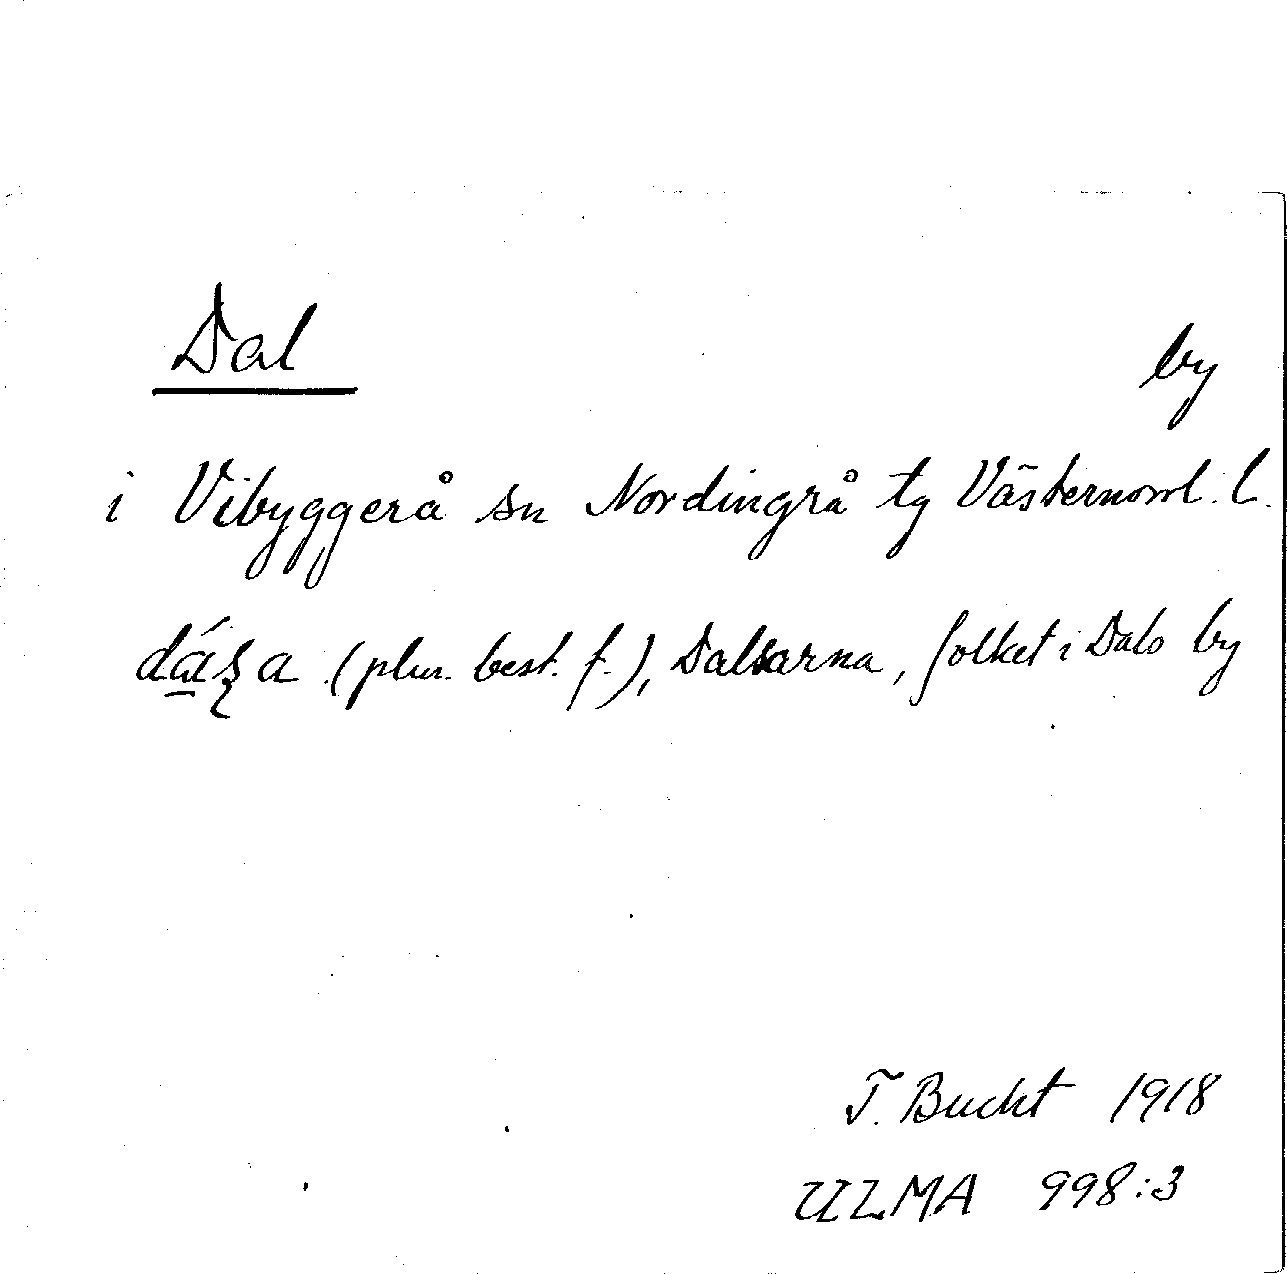 Dal by
i Vibyggerå sn Nordingrå tg Västernorrl. l.
(plur. best. f.), Dalsarna, folket i Dals by
T. Bucht 1918
ULMA 998:3